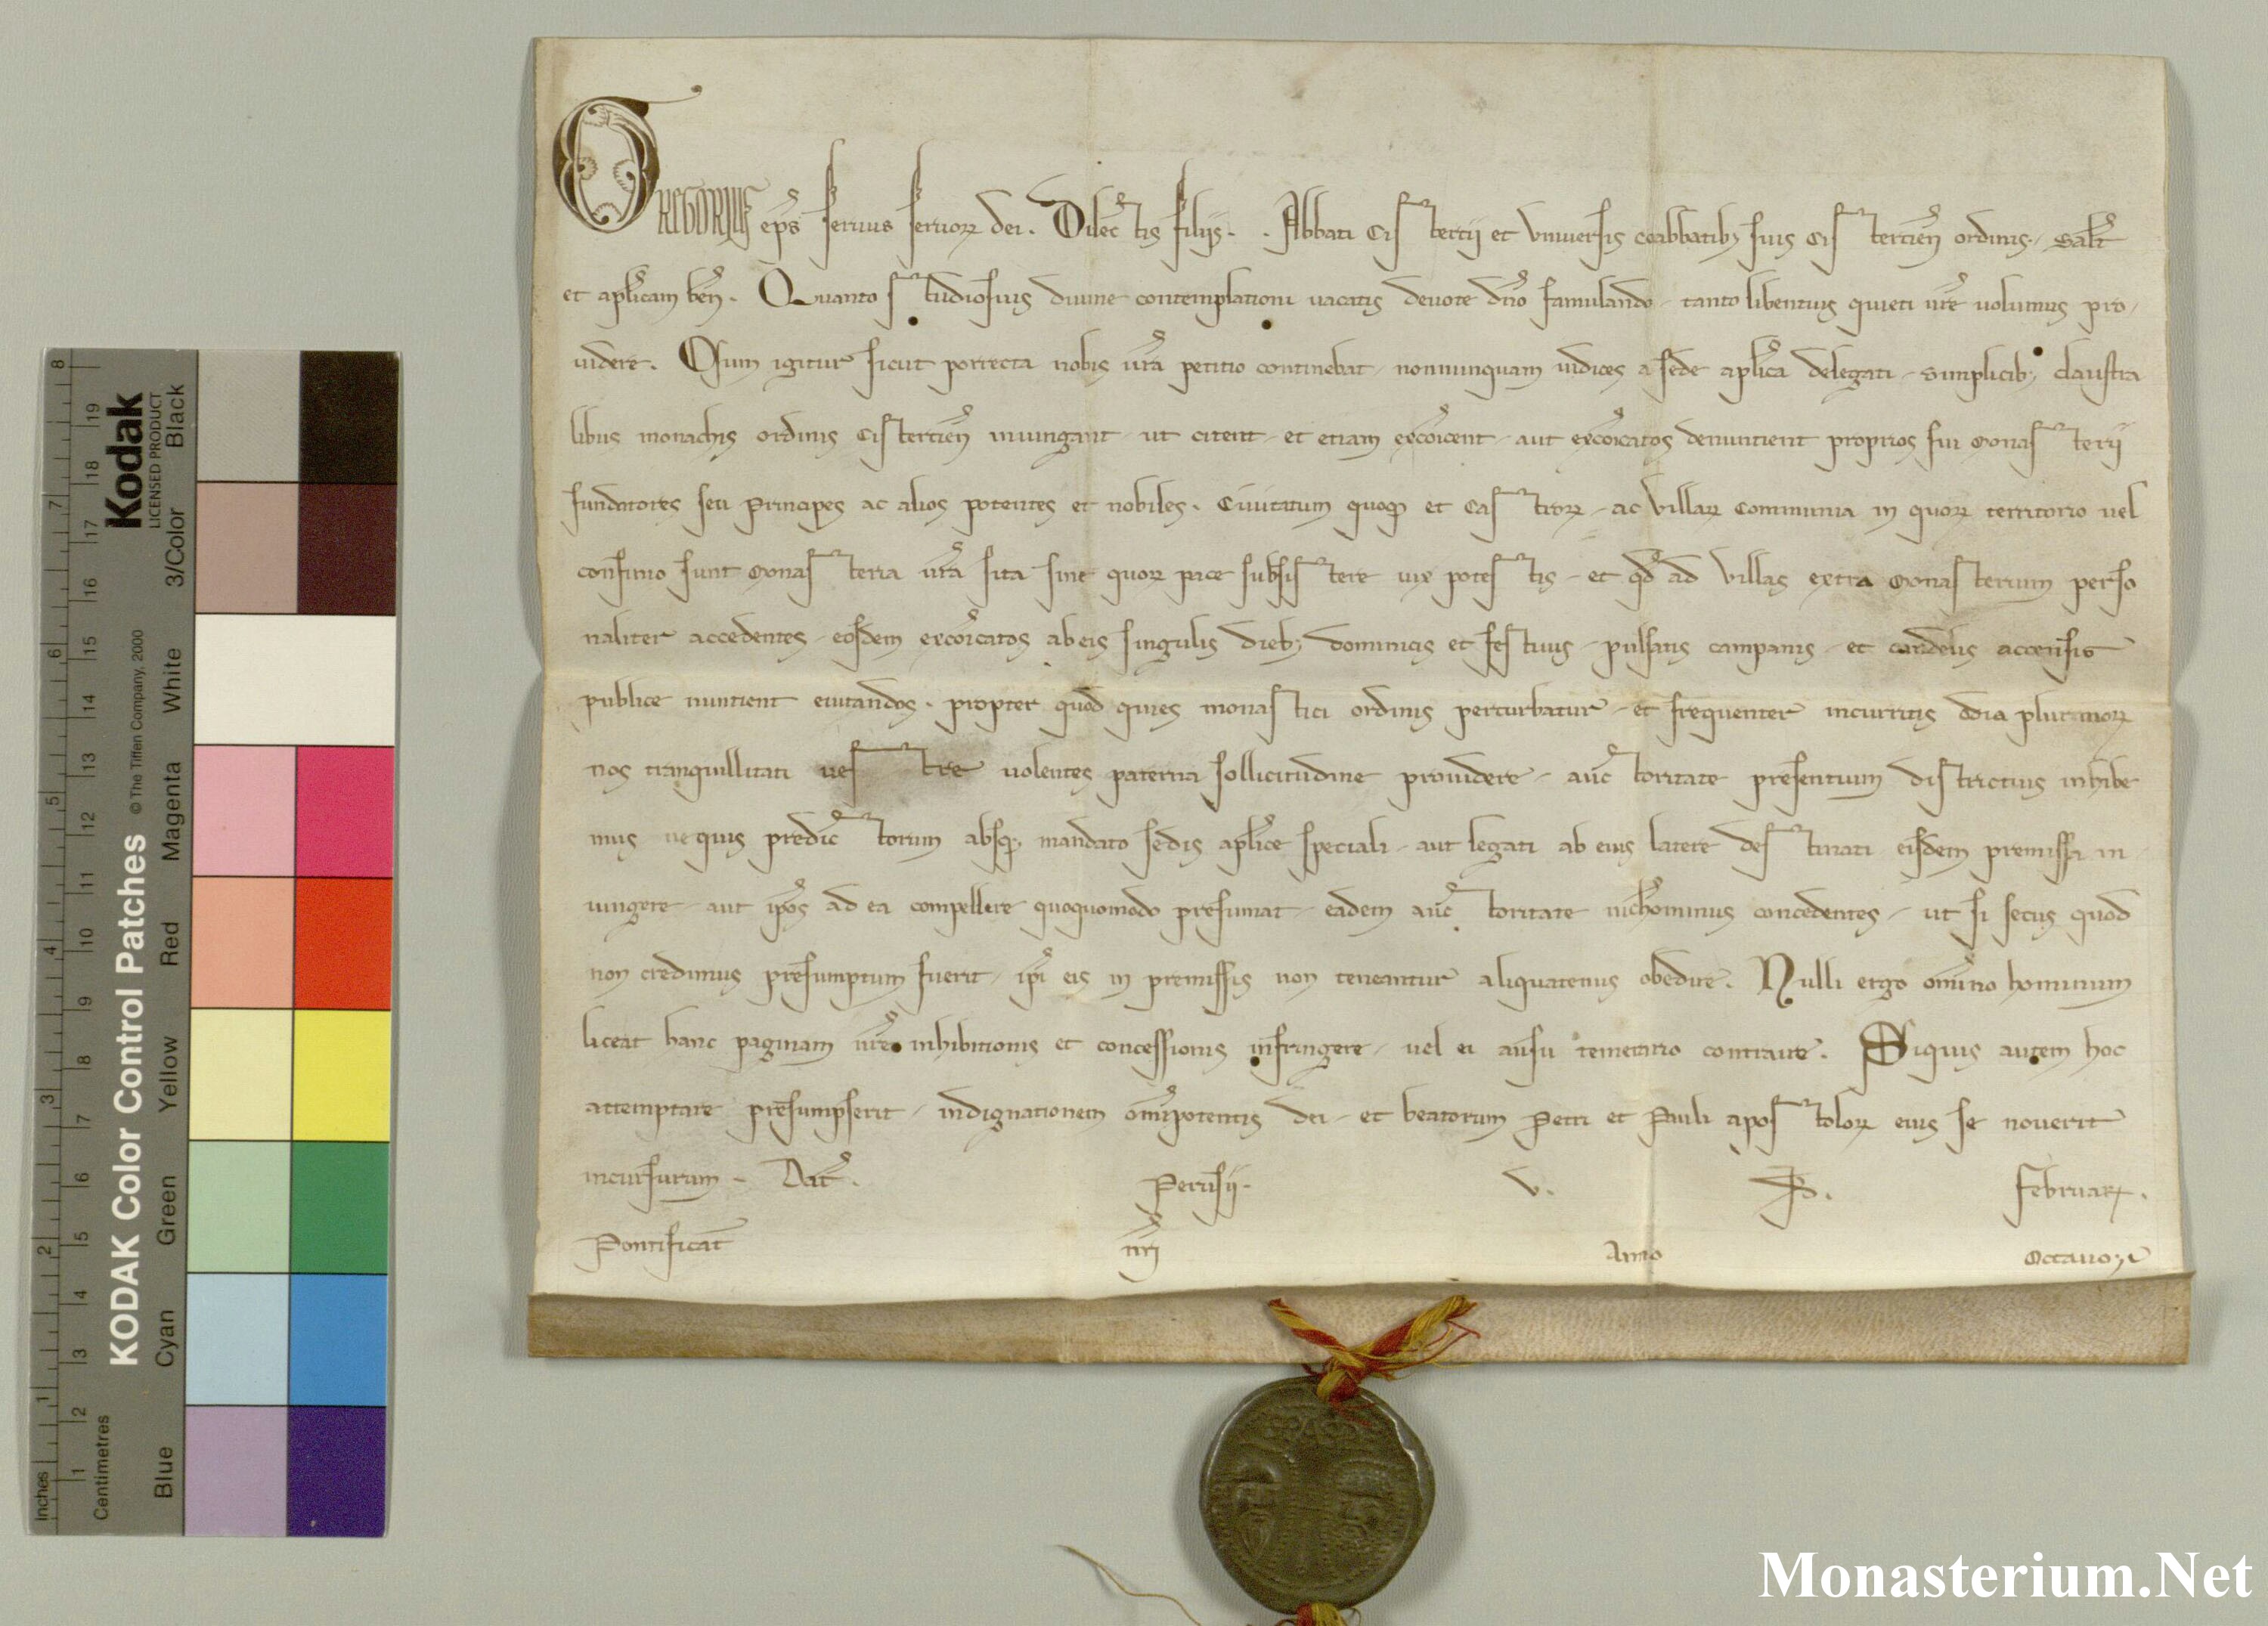 GREGORIUS ep̄s seruus seruoꝝ dei. Dilectis filijs. . Abbati Cistertij et Vniuersis coabbatibꝫ suis Cistercieñ ordinis, salt̄
et ap̄licam beñ. Quanto studiosius diuine contemplationi uacatis deuote dn̄o famulando, tanto libentius quieti ur̄e uolumus pro-
uidere. Cum igitur sicut porrecta nobis ur̄a petitio continebat, nonnunquam iudices a sede aplīca delegati, simplicibꝫ claustra
libus monachis ordinis Cistercieñ iniungant, ut citent, et etiam excōicent, aut excōicatos denuntient proprios sui Monasterij
fundatores seu Principes ac alios potentes et nobiles. Ciuitatum quoqꝫ et Castroꝝ, ac Villaꝝ Communia in quoꝝ territorio uel
confinio sunt Monasteria ur̄a sita sine quoꝝ pace subsistere uix potestis, et qd̄ ad Villas extra Monasterium perso
naliter accedentes, eosdem excōicatos ab eis singulis diebꝫ dominicis et festiuis, pulsatis campanis, et candelis accensis
publice nuntient euitandos. propter quod quies monastici ordinis perturbatur, et frequenter incurritis odia plurimoꝝ
nos tranquillitati uestre uolentes paterna sollicitudine prouidere, auctoritate presentium districtius inhibe
mus ne quis predictorum absqꝫ mandato sedis aplīce speciali, aut legati ab eius latere destinati eisdem premissa in-
iungere, aut ip̄os ad ea compellere quoquomodo presumat, eadem auctoritate nichominus concedentes, ut si secus quod
non credimus presumptum fuerit, ip̄i eis in premissis non teneantur aliquatenus obedire. Nulli ergo om̄ino hominum
liceat hanc paginam nr̄e inhibitionis et concessionis infringere, uel ei ausu temerario contraire. Siquis autem hoc
attemptare presumpserit, indignationem om̄ipotentis dei, et beatorum Petri et Pauli apostoloꝝ eius se nouerit
incursurum. Dat̄. Perusij. V. Kl̄. Februaꝝ.
Pontificat̄ nr̄i Anno Octauo
SPASPE
Monasterium.Net
KODAK Color Control Patches © The Tiffen Company, 2000
Kodak
LICENSED PRODUCT
Black
3/Color
White
Magenta
Red
Yellow
Green
Cyan
Blue
Inches 1 2 3 4 5 6 7 8
Centimetres 1 2 3 4 5 6 7 8 9 10 11 12 13 14 15 16 17 18 19